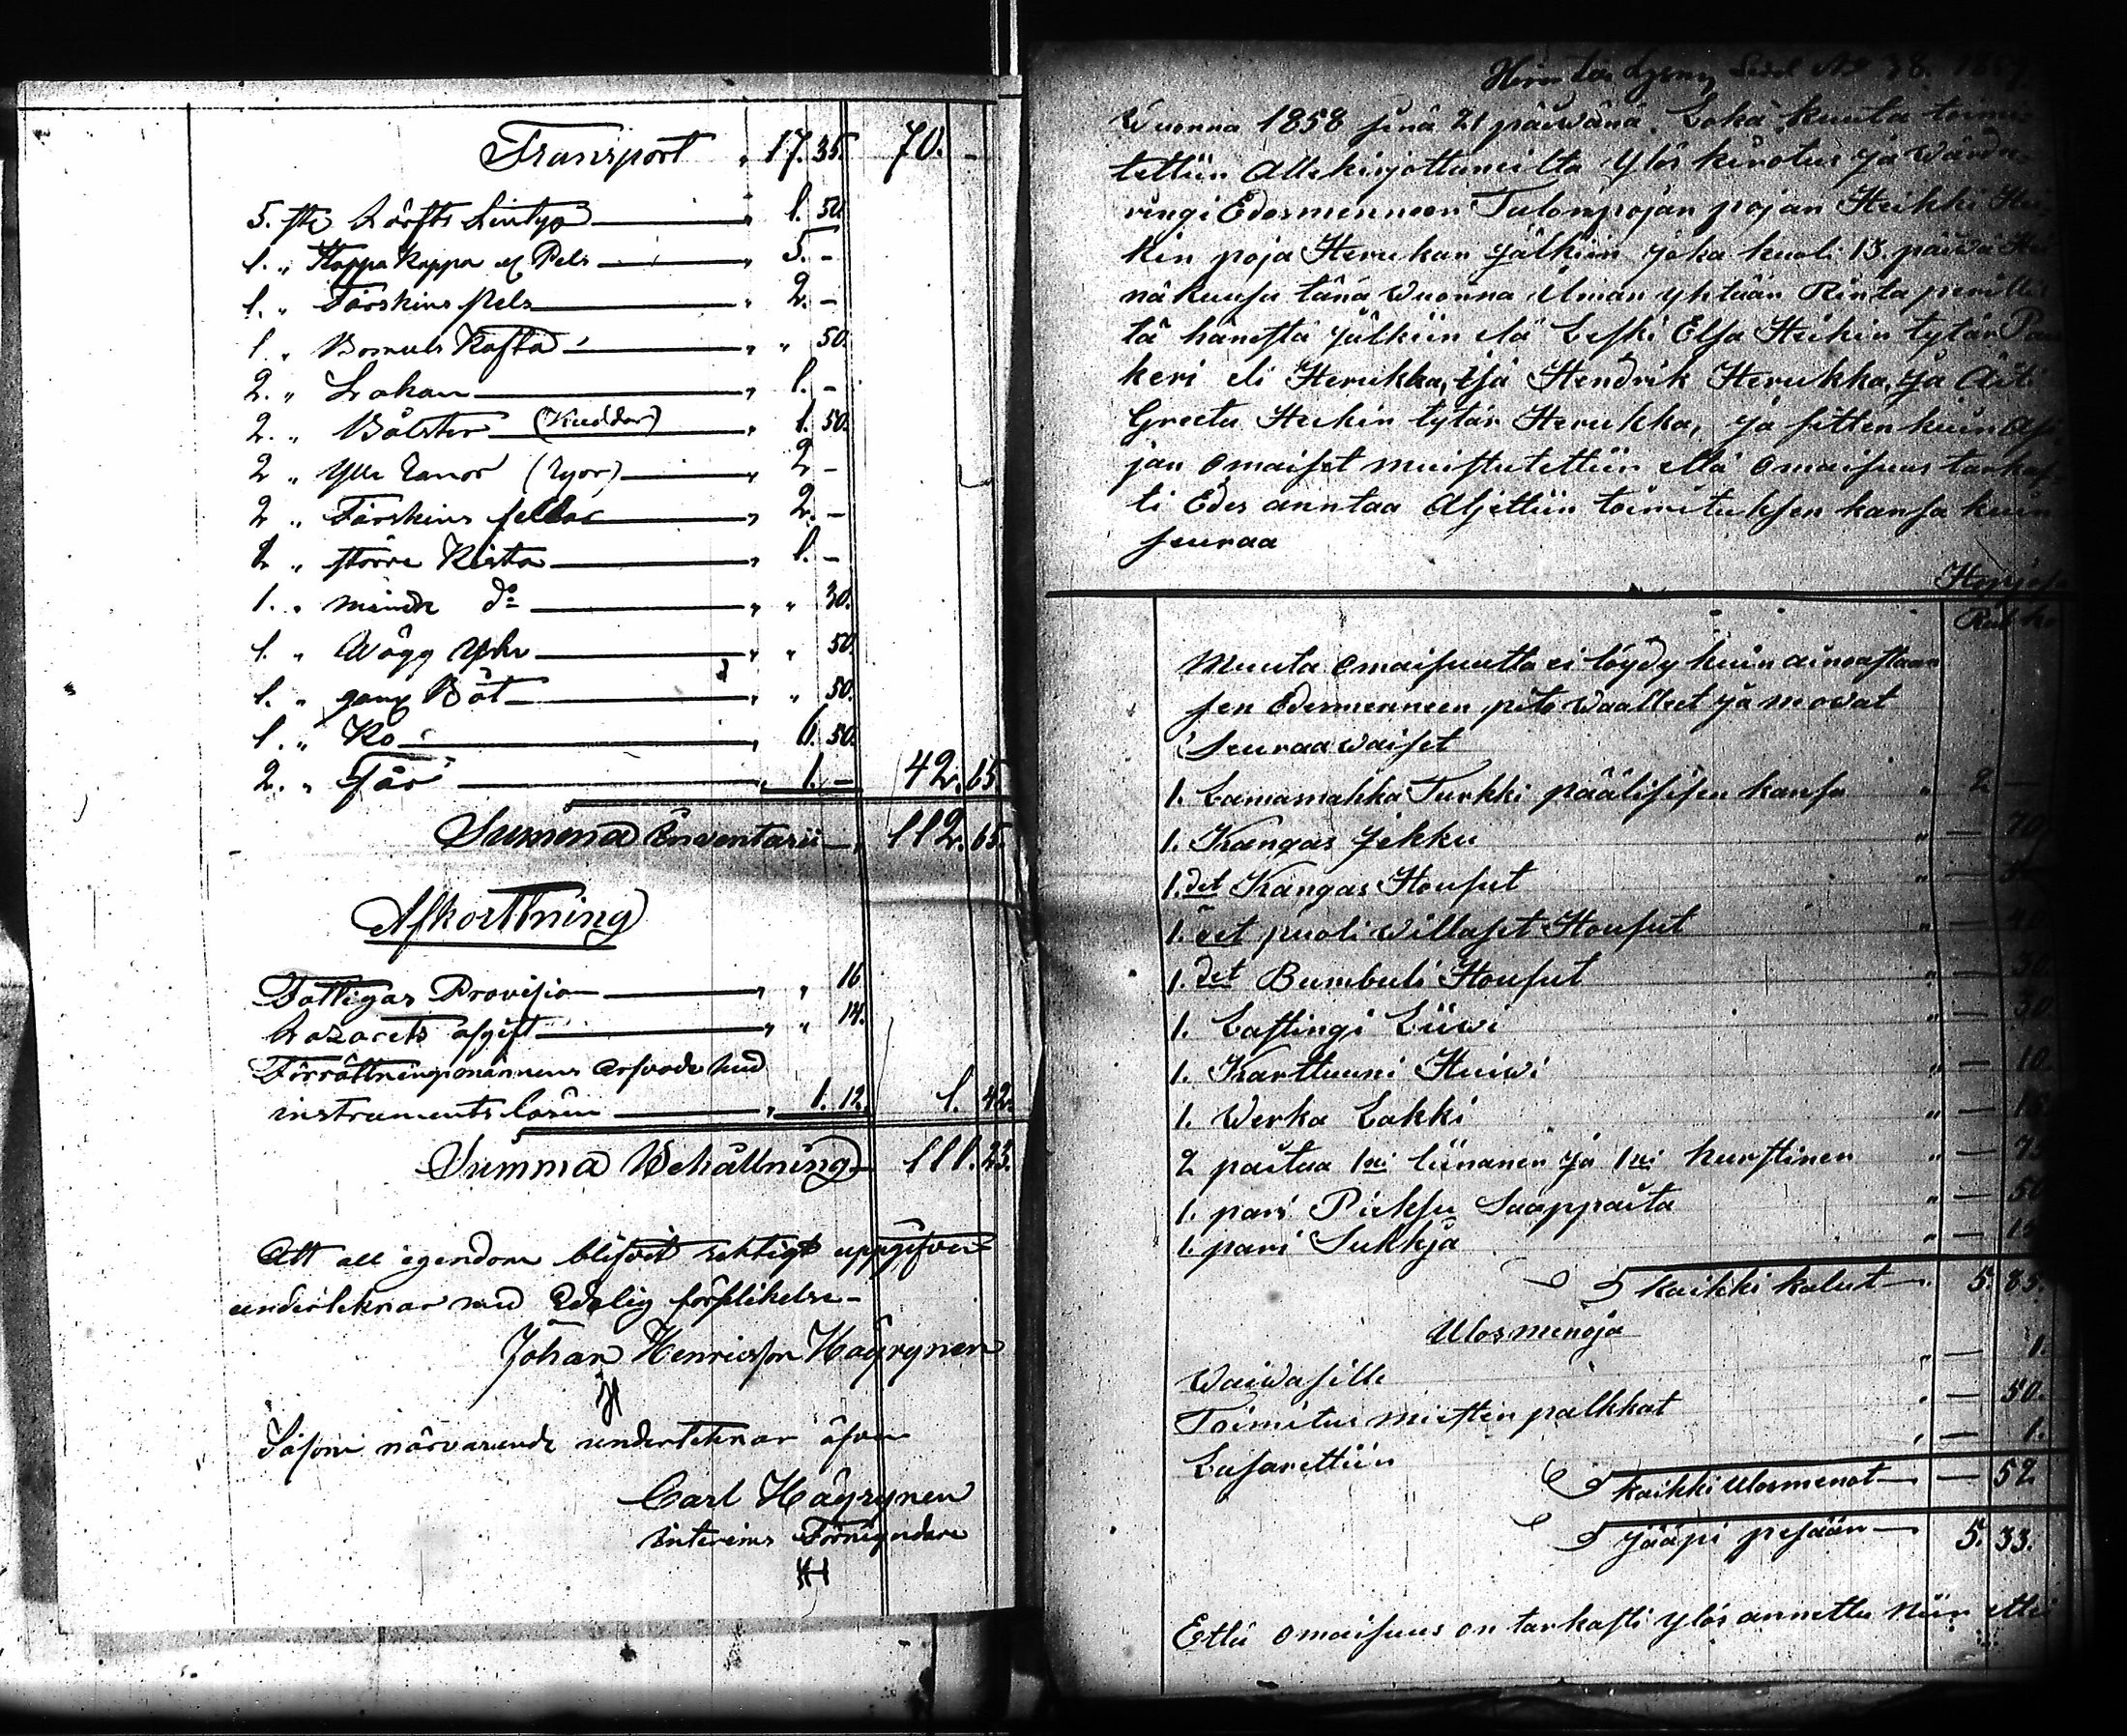 Transport " 17. 35. 70. -
5. st. Lärfts Lintyg " 1. 50.
1. " Kappa " 5. -
1. " Fårskins pels " 2. -
1 " Bomuls Kofta " " 50.
2. " Lakan " 1. -
2. " Bålster (Kuddar) " 1. 50.
2 " Ylle (ryor) " 2 -
2 " Fårskins fällar " 2. -
2 " större Kista " 1. -
1. " mindre do " " 30.
1. " Wägg Uhr " " 50.
1. " Båt " " 50.
1. " Ko " 6. 50.
2. " Får " 1. - 42. 65.
Summa Inventarii " 112. 65.
Afkorttning
Fattigas Provision " " 16
Lazarets afgift " " 14.
Förrättningsmännens arfvode med
instruments lösen " 1. 12. 1. 42.
Summa Behållning 111. 23.
Att all egendom blifvit riktigt uppgifven
undertecknar med Edelig förplikelse
Johan Henricsson Häyrynen
Såsom närvarande undertecknar äfven
Carl Häyrynen
interims Förmyndare
No 38.
Wuonna 1858 sinä 21 päiwänä Loka kuuta toimi-
tettiin Allekirjottaneilta Ylös kirotus ja wärde-
ringi Edesmenneen Talonpojan pojan Heikki Hei-
kin poja Herukan jälkiin joka kuoli 13. päiwä Hei-
näkuusa tänä wuonna ilman yhtään Rinta perillis-
tä hänestä jälkiin elä Leski Elsa Heikin tytär
keri eli Herukka, isä Hendrik Herukka, ja Äiti
Greeta Heikin tytär Herukka, ja sitten kuin Asi-
jan omaiset muistutettiin että omaisuus tarkas-
ti Edes anntaa Aljettiin toimituksen kansa kuin
seuraa
Rub ko
Muuta omaisuutta ei löydy kuin ainoastaan
sen Edesmenneen pito waatteet ja ne owat
Seuraawaiset
1. Lamamahka Turkki päälisisen kansa " 2 -
1. Kangas Jekku " - 70.
1. det Kangas Housut " -
1. det puoli willaset Housut " - 40.
1. det Bumbuli Housut " - 30.
1. Lastingi Liiwi " - 30
1. Karttuuni Huiwi " - 10.
1. Werka Lakki " -
2 paitaa 1xi liinanen ja 1xi hurstinen " - 75
1. pari Pieksu Saappaita " - 50
1. pari Sukkja " - 15
kaikki kalut 5. 85.
Ulosmenoja
Waiwasille " - 1.
Toimitus miesten palkkat " - 50.
Lasarettiin " - 1.
kaikki Ulosmenot - 52
Jääpi pesään 5. 33.
Että omaisuus on tarkasti ylös annettu niin että